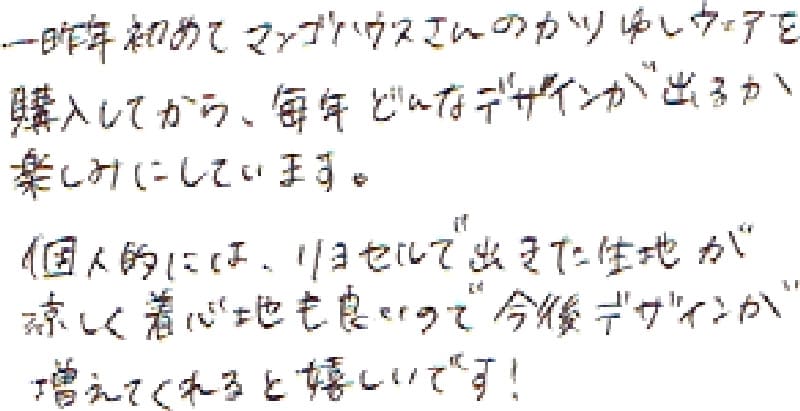 一昨年初めてマンゴハウスさんのかりゆしウェアを
購入してから、毎年どんなデザインが出るか
楽しみにしています。
個人的には、リヨセルで出きた生地が
涼しく着心地も良いので今後デザインが
増えてくれると嬉しいです!